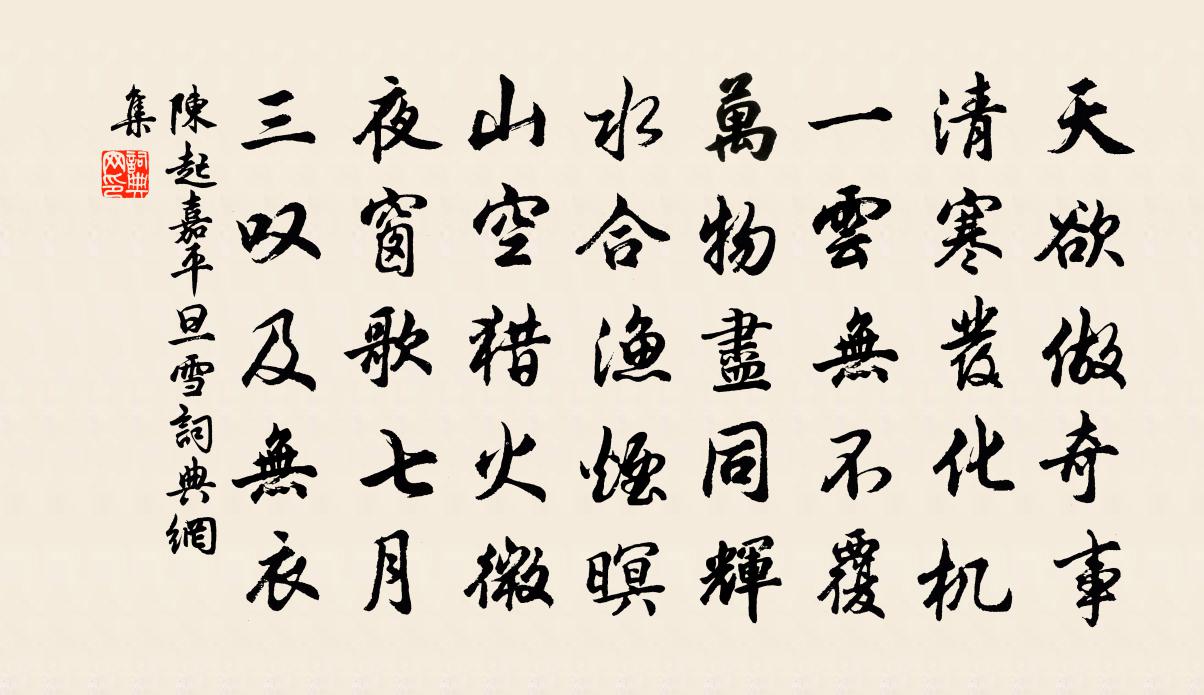 天欲做奇事
清寒發化机
一雲無不覆
萬物盡同輝
水合漁煙暝
山空猎火微
夜窗歌七月
三叹及無衣
陳起嘉平旦雪詞典網
集
詞典
网印